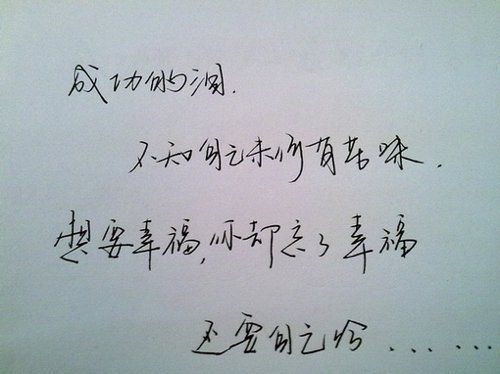 成功的泪.
不知自己未何有苦味.
想要幸福,你却忘了幸福
还要自己给........